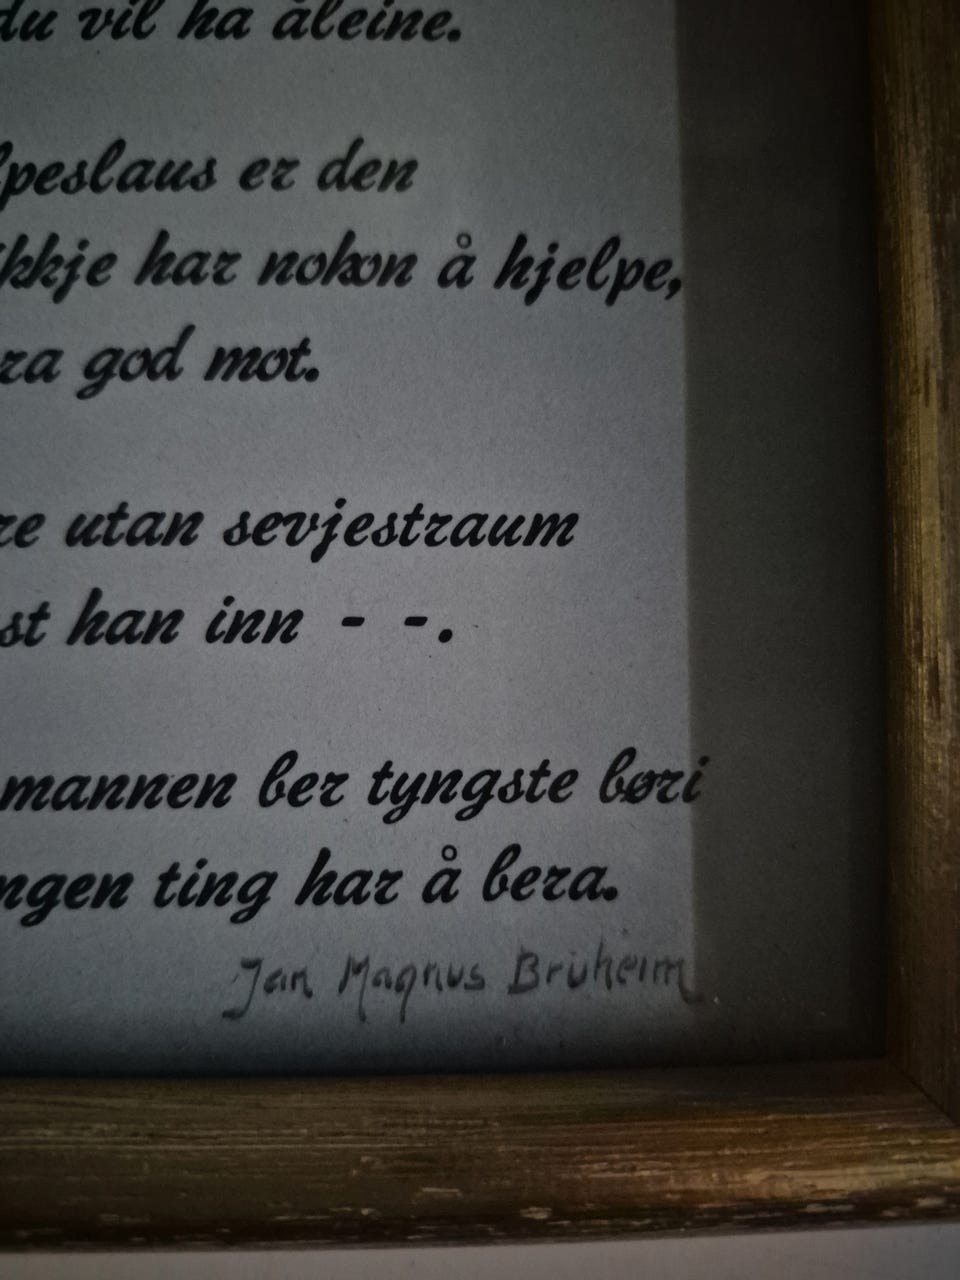 du vil ha åleine.
lpeslaus er den
ikkje har nokon å hjelpe,
ra god mot.
re utan sevjestraum
st han inn - -.
mannen ber tyngste børi
ngen ting har å bera.
Jan Magnus Bruheim